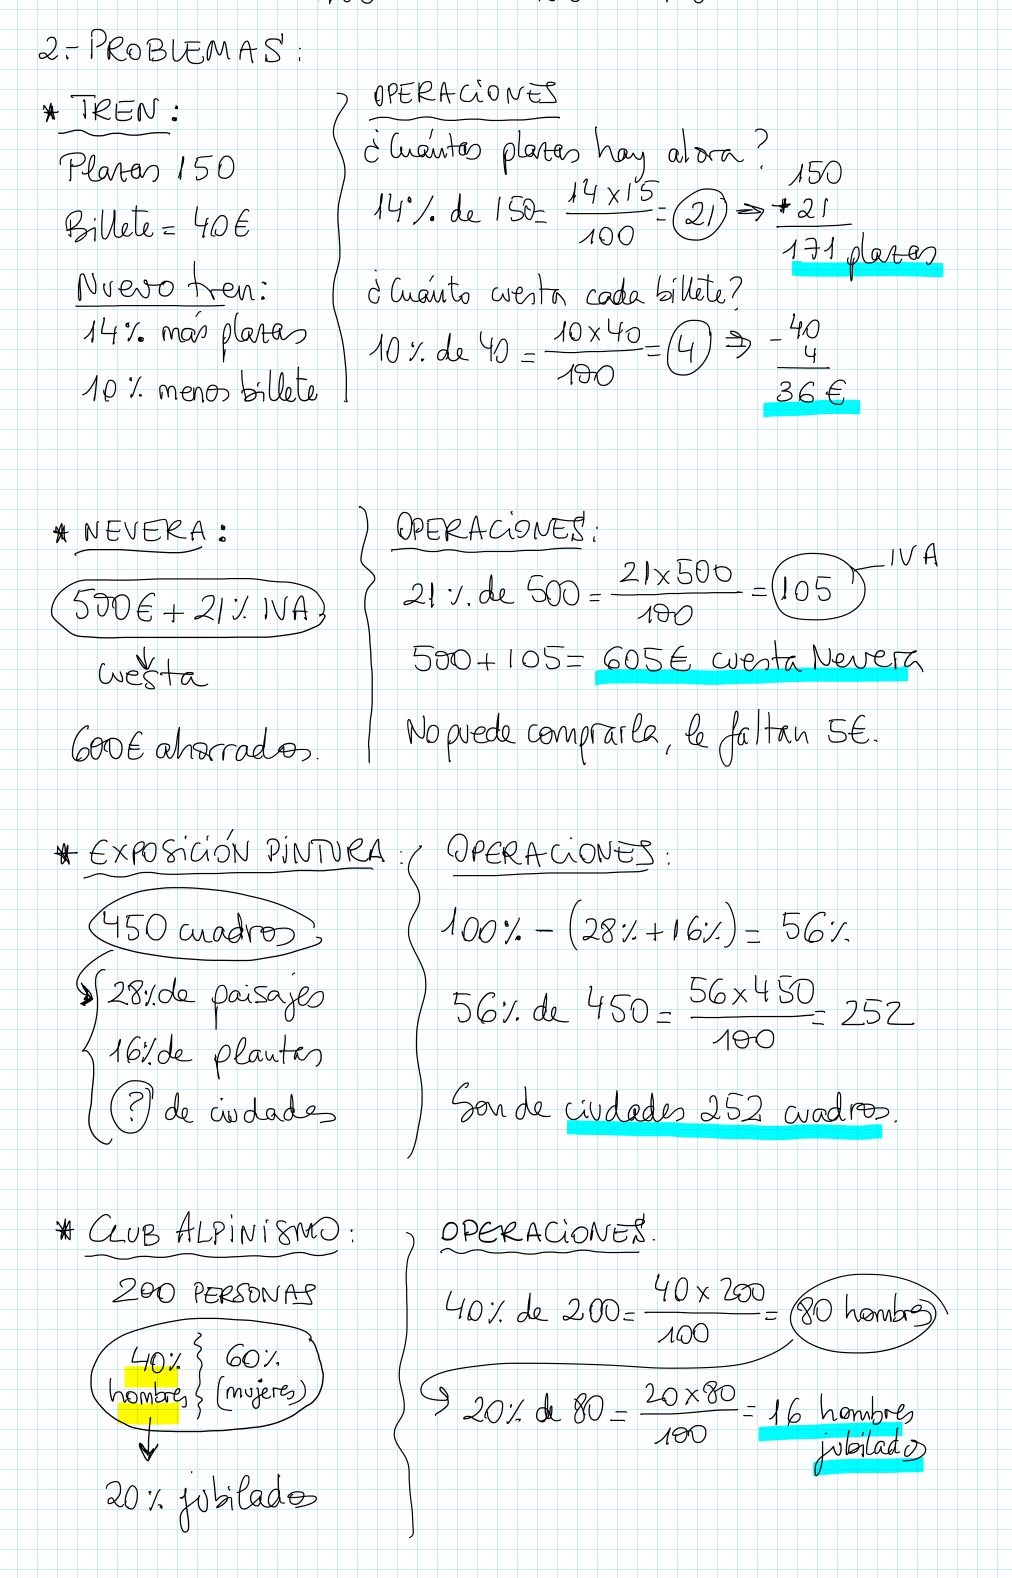 2.- PROBLEMAS:
* TREN:
Plazas 150
Billete = 40€
Nuevo tren:
14% más plazas
10% menos billete
OPERACIONES
¿Cuántas plazas hay ahora?
14% de 150 = 14 x 15 / 100 = 21 ⇒ 150
+ 21
171 plazas
¿Cuánto cuesta cada billete?
10% de 40 = 10 x 40 / 100 = 4 ⇒ - 40
4
36 €
* NEVERA:
500€ + 21% IVA
↓
cuesta
600€ ahorrados.
OPERACIONES:
21% de 500 = 21 x 500 / 100 = 105 IVA
500 + 105 = 605€ cuesta Nevera
No puede comprarla, le faltan 5€.
* EXPOSICIÓN PINTURA:
450 cuadros
28% de paisajes
16% de plantas
? de ciudades
OPERACIONES:
100% - (28% + 16%) = 56%
56% de 450 = 56 x 450 / 100 = 252
Son de ciudades 252 cuadros.
* CLUB ALPINISMO:
200 PERSONAS
40% } 60%
hombres } (mujeres)
↓
20% jubilados
OPERACIONES.
40% de 200 = 40 x 200 / 100 = 80 hombres
20% de 80 = 20 x 80 / 100 = 16 hombres
jubilados